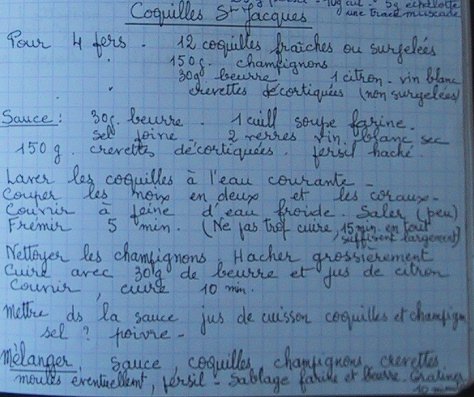 10g ail - 5g échalotte
une trace muscade
Coquilles St Jacques
Pour 4 pers - 12 coquilles fraîches ou surgelées
" 150g. champignons
30g beurre 1 citron - vin blanc
" crevettes décortiquées (non surgelées)
Sauce : 30g. beurre - 1 cuill soupe farine -
sel poivre - 2 verres vin blanc sec
150 g. crevettes décortiquées. persil haché
Laver les coquilles à l'eau courante -
Couper les noix en deux et les coraux -
Couvrir à peine d'eau froide. Saler (peu)
Frémir 5 min. (Ne pas trop cuire, 15 min. en tout
suffisent largement)
Nettoyer les champignons Hacher grossièrement
Cuire avec 30g de beurre et jus de citron
Couvrir, cuire 10 min.
Mettre ds la sauce jus de cuisson coquilles et champign
sel ? poivre -
Mélanger, sauce, coquilles, champignons, crevettes,
moules éventuellement, persil - Sablage farine et beurre. Gratiner
10 min